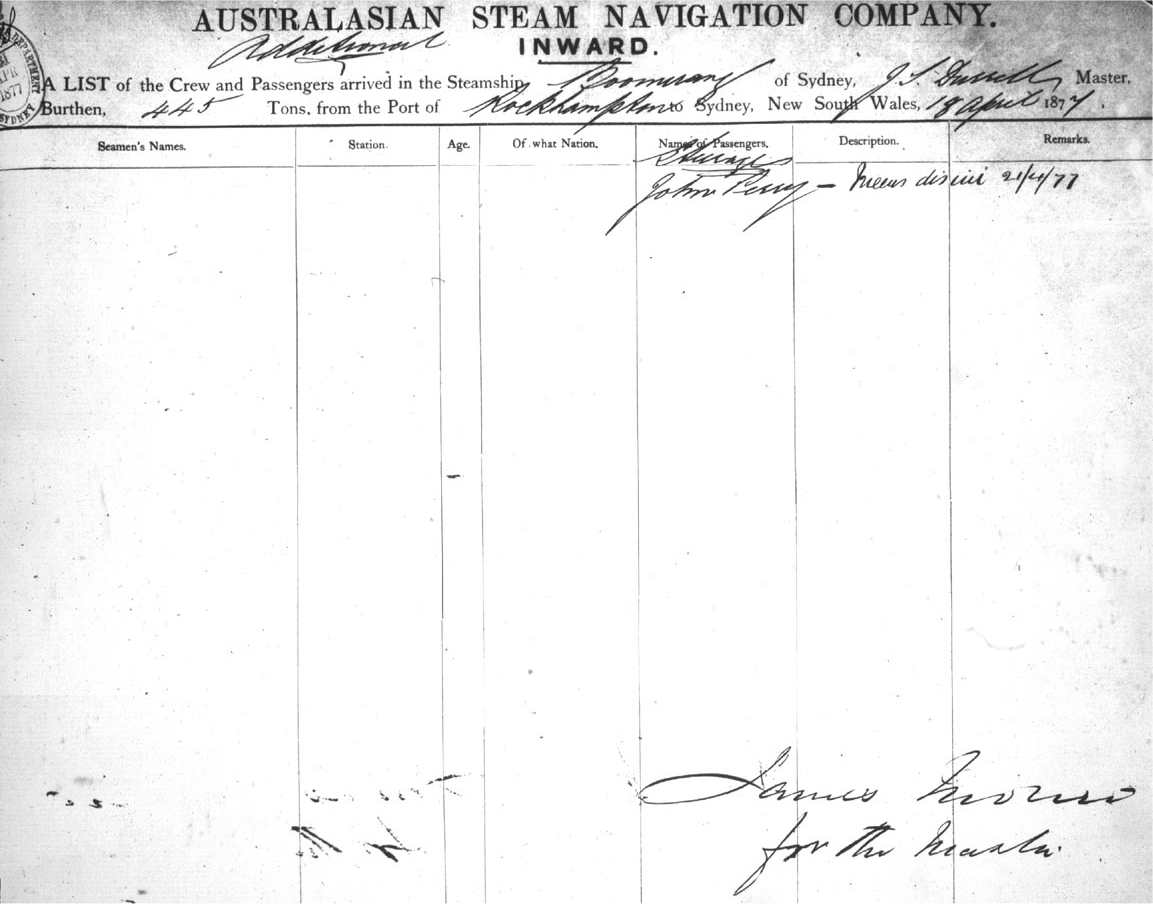 AUSTRALASIAN STEAM NAVIGATION COMPANY.
Additional
INWARD.
A LIST of the Crew and Passengers arrived in the Steamship Boomerang of Sydney, J S Master,
Burthen, 445 Tons, from the Port of Rockhampton to Sydney, New South Wales, 18 April 1877.
DEPARTMENT
APR
1877
SYDNEY
Seamen's Names. Station. Age. Of what Nation. Names of Passengers. Description. Remarks.
Steerage
John Perry — 21/4/77
James
for the Master